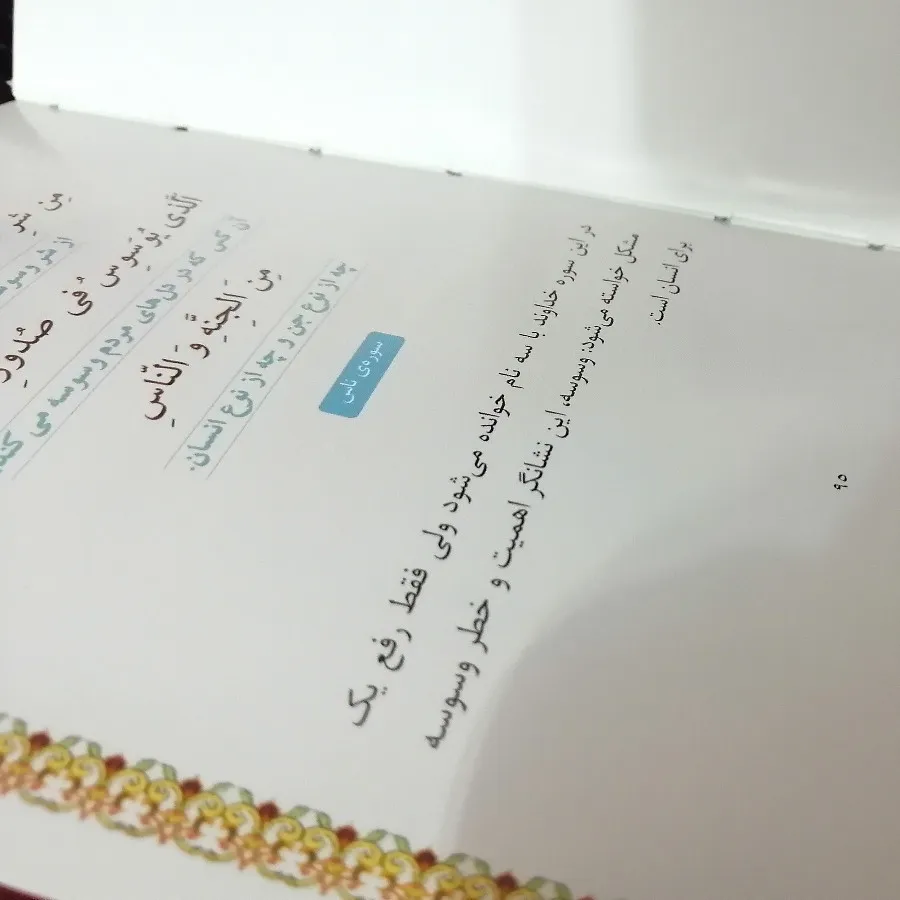 مِن شَرِ
از شر وسوسه
اَلَّذی یُوَسوِسُ فی صُدورِ
آن کسی که در دل‌های مردم وسوسه می کند
مِنِ اَلجِنَّهِ وَ اَلنّاسِ
چه از نوع جن و چه از نوع انسان.
سوره‌ی ناس
در این سوره خداوند با سه نام خوانده می‌شود ولی فقط رفع یک
مشکل خواسته می‌شود: وسوسه، این نشانگر اهمیت و خطر وسوسه
برای انسان است.
۹۵